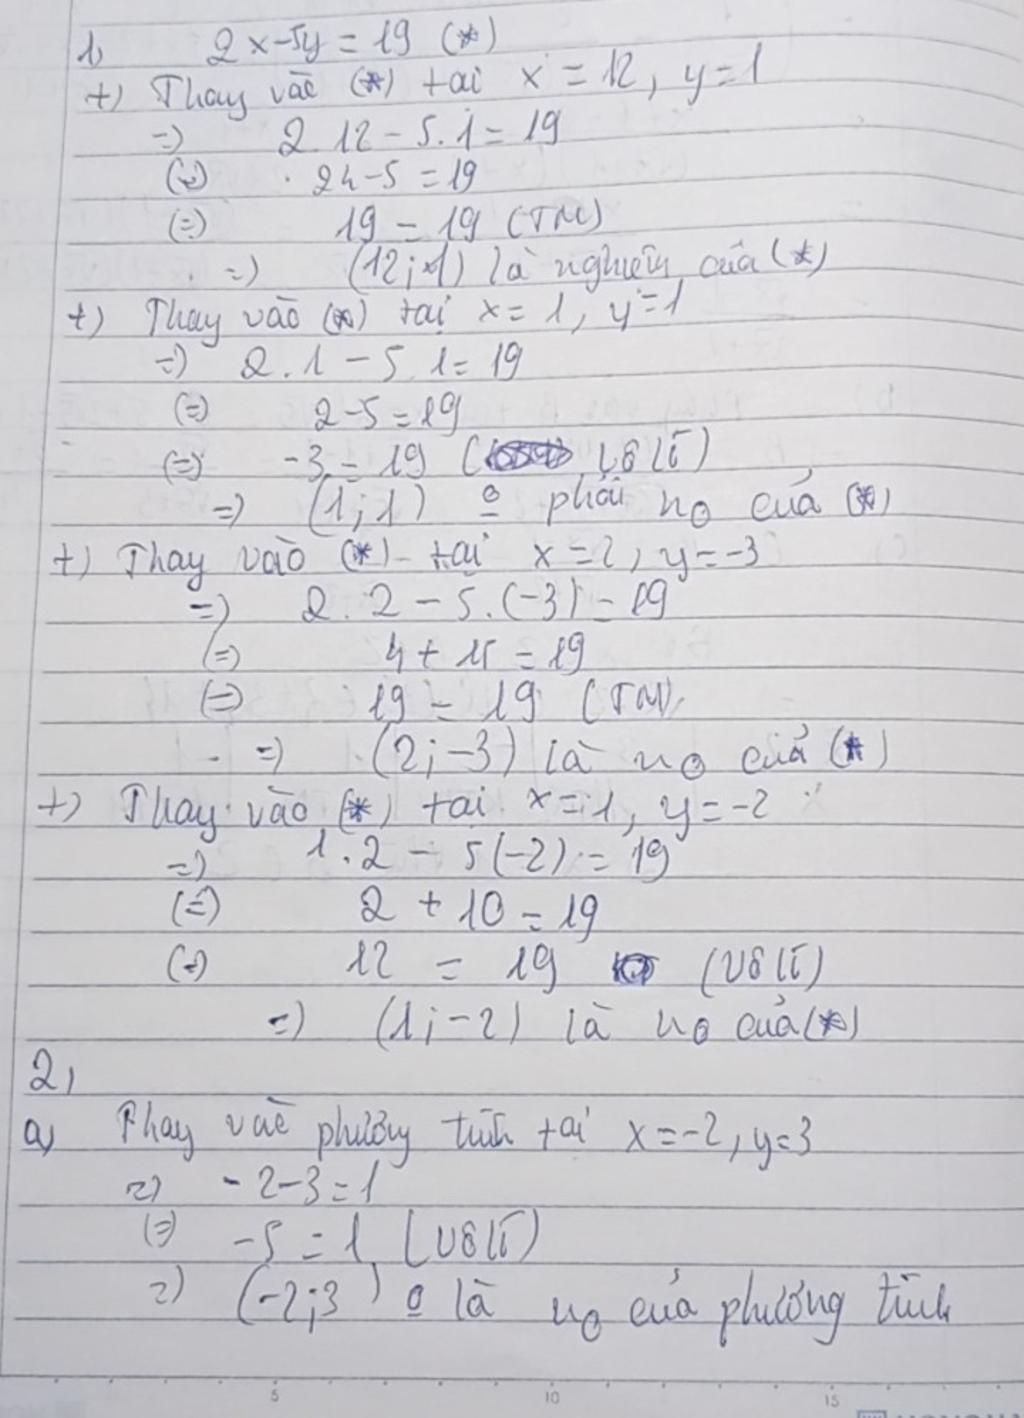 1, 2x-5y = 19 (*)
+) Thay vào (*) tại x = 12, y = 1
=) 2.12 - 5.1 = 19
(=) 24-5 = 19
(=) 19 = 19 (TM)
=) (12;1) là nghiệm của (*)
+) Thay vào (*) tại x = 1, y = 1
=) 2.1 - 5.1 = 19
(=) 2-5 = 19
(=) -3 = 19 (vô lí)
=) (1;1) o phải no của (*)
+) Thay vào (*) tại x = 2, y = -3
=) 2.2 - 5.(-3) = 19
(=) 4 + 15 = 19
(=) 19 = 19 (TM)
=) (2;-3) là no của (*)
+) Thay vào (*) tại x = 1, y = -2
=) 1.2 - 5(-2) = 19
(=) 2 + 10 = 19
(=) 12 = 19 (vô lí)
=) (1;-2) là no của (*)
2,
a, Thay vào phương trình tại x = -2, y = 3
=) -2-3 = 1
(=) -5 = 1 (vô lí)
=) (-2;3) o là no của phương trình
5 10 15